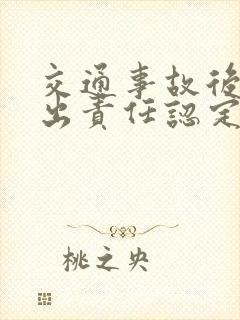 交通事故後
出責任認定
桃之央